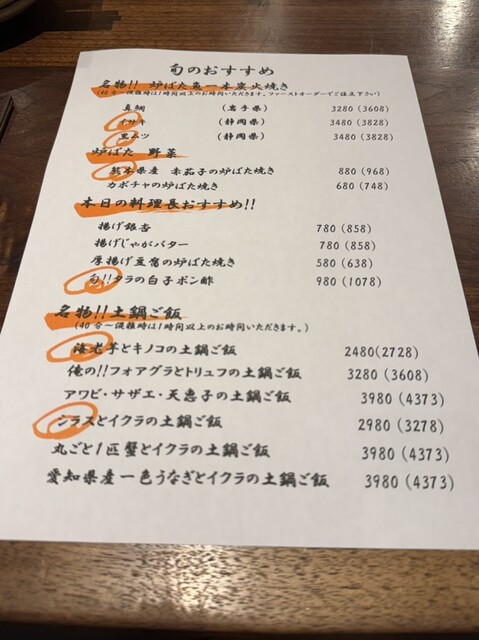 旬のおすすめ
名物!! 炉ばた魚一本炭火焼き
(40分～混雑時は1時間以上のお時間いただきます。ファーストオーダーでご注文下さい)
真鯛 (岩手県) 3280 (3608)
イサキ (静岡県) 3480 (3828)
黒ムツ (静岡県) 3480 (3828)
炉ばた 野菜
熊本県産 赤茄子の炉ばた焼き 880 (968)
カボチャの炉ばた焼き 680 (748)
本日の料理長おすすめ!!
揚げ銀杏 780 (858)
揚げじゃがバター 780 (858)
厚揚げ豆腐の炉ばた焼き 580 (638)
旬!!タラの白子ポン酢 980 (1078)
名物!!土鍋ご飯
(40分～混雑時は1時間以上のお時間いただきます。)
海老芋とキノコの土鍋ご飯 2480(2728)
俺の!!フォアグラとトリュフの土鍋ご飯 3280 (3608)
アワビ・サザエ・天恵子の土鍋ご飯 3980 (4373)
シラスとイクラの土鍋ご飯 2980 (3278)
丸ごと1匹蟹とイクラの土鍋ご飯 3980 (4373)
愛知県産一色うなぎとイクラの土鍋ご飯 3980 (4373)